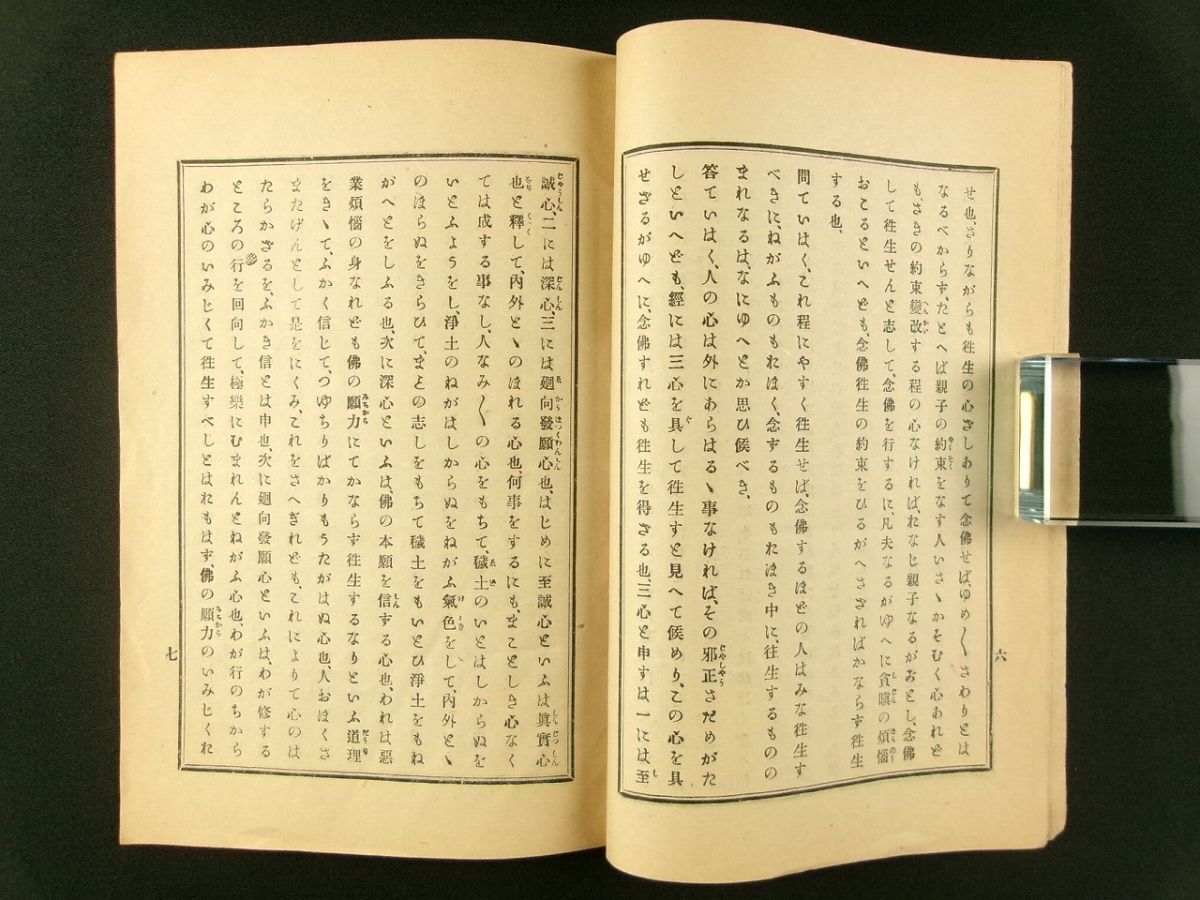 せ也、さりながらも往生の心ざしありて念佛せば、ゆめ〱さわりとは
なるべからず、たとへば親子の約束をなす人いさゝかそむく心あれど
もさきの約束變改する程の心なければ、れなじ親子なるがおとし、念佛
して往生せんと志して、念佛を行ずるに、凡夫なるがゆへに貪瞋の煩惱
おこるといへども、念佛往生の約束をひるがへさざればかならず往生
する也、
問ていはく、これ程にやすく往生せば、念佛するほどの人はみな往生す
べきに、ねがふものもれほく、念ずるものもれほき中に、往生するものの
まれなるは、なにゆへとか思ひ候べき、
答ていはく、人の心は外にあらはるゝ事なければ、その邪正さだめがた
しといへども、經には三心を具して往生すと見へて候めり、この心を具
せざるがゆへに、念佛すれども往生を得ざる也、三心と申すは一には至
六
誠心、二には深心、三には廻向發願心也、はじめに至誠心といふは眞實心
也と釋して、內外とゝのほれる心也、何事をするにも、まことしき心なく
ては成する事なし、人なみ〱の心をもちて、穢土のいとはしからぬを
いとふよしをし、淨土のねがはしからぬをねがふ氣色をして、內外とゝ
のほらぬをきらひて、まとの志しをもちて穢土をもいとひ淨土をもね
がへとをしふる也、次に深心といふは、佛の本願を信ずる心也、われは惡
業煩惱の身なれども佛の願力にてかならず往生するなりといふ道理
をきゝて、ふかく信じて、つゆちりばかりもうたがはぬ心也、人おほくさ
またげんとして是をにくみ、これをさへぎれども、これによりて心のは
たらかざるを、ふかき信とは申也、次に廻向發願心といふは、わが修する
ところの行を回向して、極樂にむまれんとねがふ心也、わが行のちから
わが心のいみじくて往生すべしとはれもはず、佛の願力のいみじくれ
七